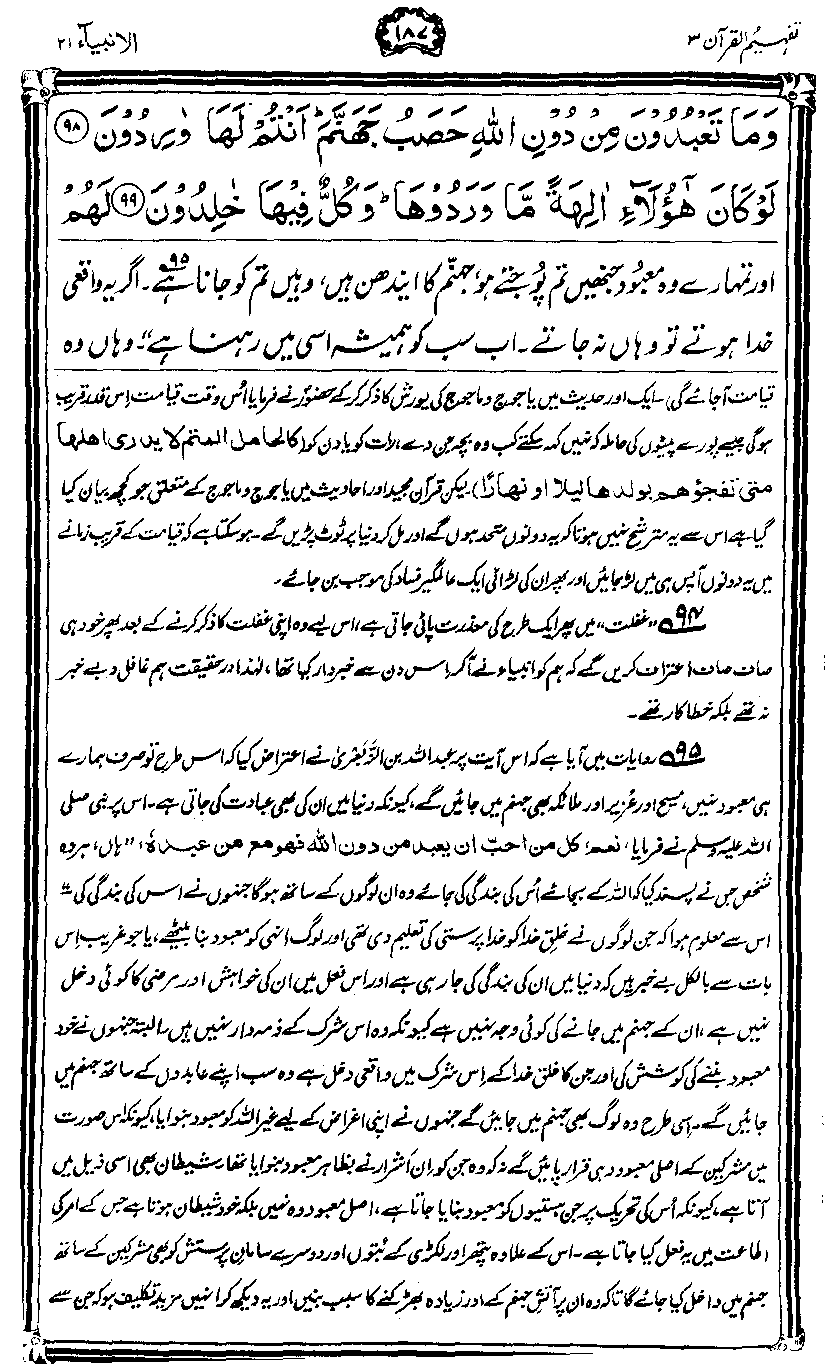 تفہیم القرآن ۳
۱۸۷
الانبیآء ۲۱
وَمَا تَعْبُدُوْنَ مِنْ دُوْنِ اللّٰهِ حَصَبُ جَهَنَّمَ ؕ اَنْتُمْ لَهَا وٰرِدُوْنَ ﴿۹۸﴾
لَوْ كَانَ هٰٓؤُلَآءِ اٰلِهَةً مَّا وَرَدُوْهَا ؕ وَكُلٌّ فِيْهَا خٰلِدُوْنَ ﴿۹۹﴾ لَهُمْ
اور تمہارے وہ معبود جنھیں تم پوجتے ہو، جہنّم کا ایندھن ہیں، وہیں تم کو جانا ہے۹۵۔ اگر یہ واقعی
خدا ہوتے تو وہاں نہ جاتے۔ اب سب کو ہمیشہ اسی میں رہنا ہے“۔ وہاں وہ
قیامت آجائے گی)۔ ایک اور حدیث میں یاجوج وماجوج کی یورش کا ذکر کرکے حضورؐ نے فرمایا اُس وقت قیامت اِس قدر قریب
ہوگی جیسے پورے پیٹوں کی حاملہ کہ نہیں کہہ سکتے کب وہ بچہ جن دے، رات کو یا دن کو (کالحامل المتم لا یدری اھلھا
متی تفجؤھم بولدھا لیلا او نھارًا) لیکن قرآن مجید اور احادیث میں یاجوج وماجوج کے متعلق جو کچھ بیان کیا
گیا ہے اس سے یہ مترشح نہیں ہوتا کہ یہ دونوں متحد ہوں گے اور مل کر دنیا پر ٹوٹ پڑیں گے۔ ہوسکتا ہے کہ قیامت کے قریب زمانے
میں یہ دونوں آپس ہی میں لڑ جائیں اور پھر ان کی لڑائی ایک عالمگیر فساد کی موجب بن جائے۔
۹۴ ”غفلت“ میں پھر ایک طرح کی معذرت پائی جاتی ہے، اس لیے وہ اپنی غفلت کا ذکر کرنے کے بعد پھر خود ہی
صاف صاف اعتراف کریں گے کہ ہم کو انبیاء نے آکر اس دن سے خبردار کیا تھا، لہٰذا درحقیقت ہم غافل و بے خبر
نہ تھے بلکہ خطاکار تھے۔
۹۵ روایات میں آیا ہے کہ اس آیت پر عبداللہ بن الزَّبَعریٰ نے اعتراض کیا کہ اس طرح تو صرف ہمارے
ہی معبود نہیں، مسیح اور عُزیر اور ملائکہ بھی جہنم میں جائیں گے، کیونکہ دنیا میں ان کی بھی عبادت کی جاتی ہے۔ اس پر نبی صلی
اللہ علیہ وسلم نے فرمایا، نعم، کل من احبّ ان یعبد من دون اللہ فھو مع من عبدہٗ، ”ہاں، ہر وہ
شخص جس نے پسند کیا کہ اللہ کے بجائے اُس کی بندگی کی جائے وہ ان لوگوں کے ساتھ ہوگا جنہوں نے اس کی بندگی کی“۔
اس سے معلوم ہوا کہ جن لوگوں نے خلقِ خدا کو خدا پرستی کی تعلیم دی تھی اور لوگ انہی کو معبود بنا بیٹھے، یا جو غریب اِس
بات سے بالکل بے خبر ہیں کہ دنیا میں ان کی بندگی کی جارہی ہے اور اس فعل میں ان کی خواہش اور مرضی کا کوئی دخل
نہیں ہے، ان کے جہنم میں جانے کی کوئی وجہ نہیں ہے کیونکہ وہ اس شرک کے ذمہ دار نہیں ہیں۔ البتہ جنہوں نے خود
معبود بننے کی کوشش کی اور جن کا خلقِ خدا کے اِس شرک میں واقعی دخل ہے وہ سب اپنے عابدوں کے ساتھ جہنم میں
جائیں گے۔ اِسی طرح وہ لوگ بھی جہنم میں جائیں گے جنہوں نے اپنی اغراض کے لیے غیر اللہ کو معبود بنوایا، کیونکہ اس صورت
میں مشرکین کے اصلی معبود وہی قرار پائیں گے نہ کہ وہ جن کو اِن اَشرار نے بظاہر معبود بنوایا تھا۔ شیطان بھی اسی ذیل میں
آتا ہے، کیونکہ اُس کی تحریک پر جن ہستیوں کو معبود بنایا جاتا ہے، اصل معبود وہ نہیں بلکہ خود شیطان ہوتا ہے جس کے امر کی
اطاعت میں یہ فعل کیا جاتا ہے۔ اس کے علاوہ پتھر اور لکڑی کے بُتوں اور دوسرے سامانِ پرستش کو بھی مشرکین کے ساتھ
جہنم میں داخل کیا جائے گا تاکہ وہ ان پر آتشِ جہنم کے اور زیادہ بھڑکنے کا سبب بنیں اور یہ دیکھ کر انہیں مزید تکلیف ہو کہ جن سے